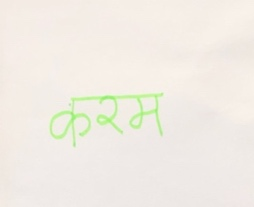 करम